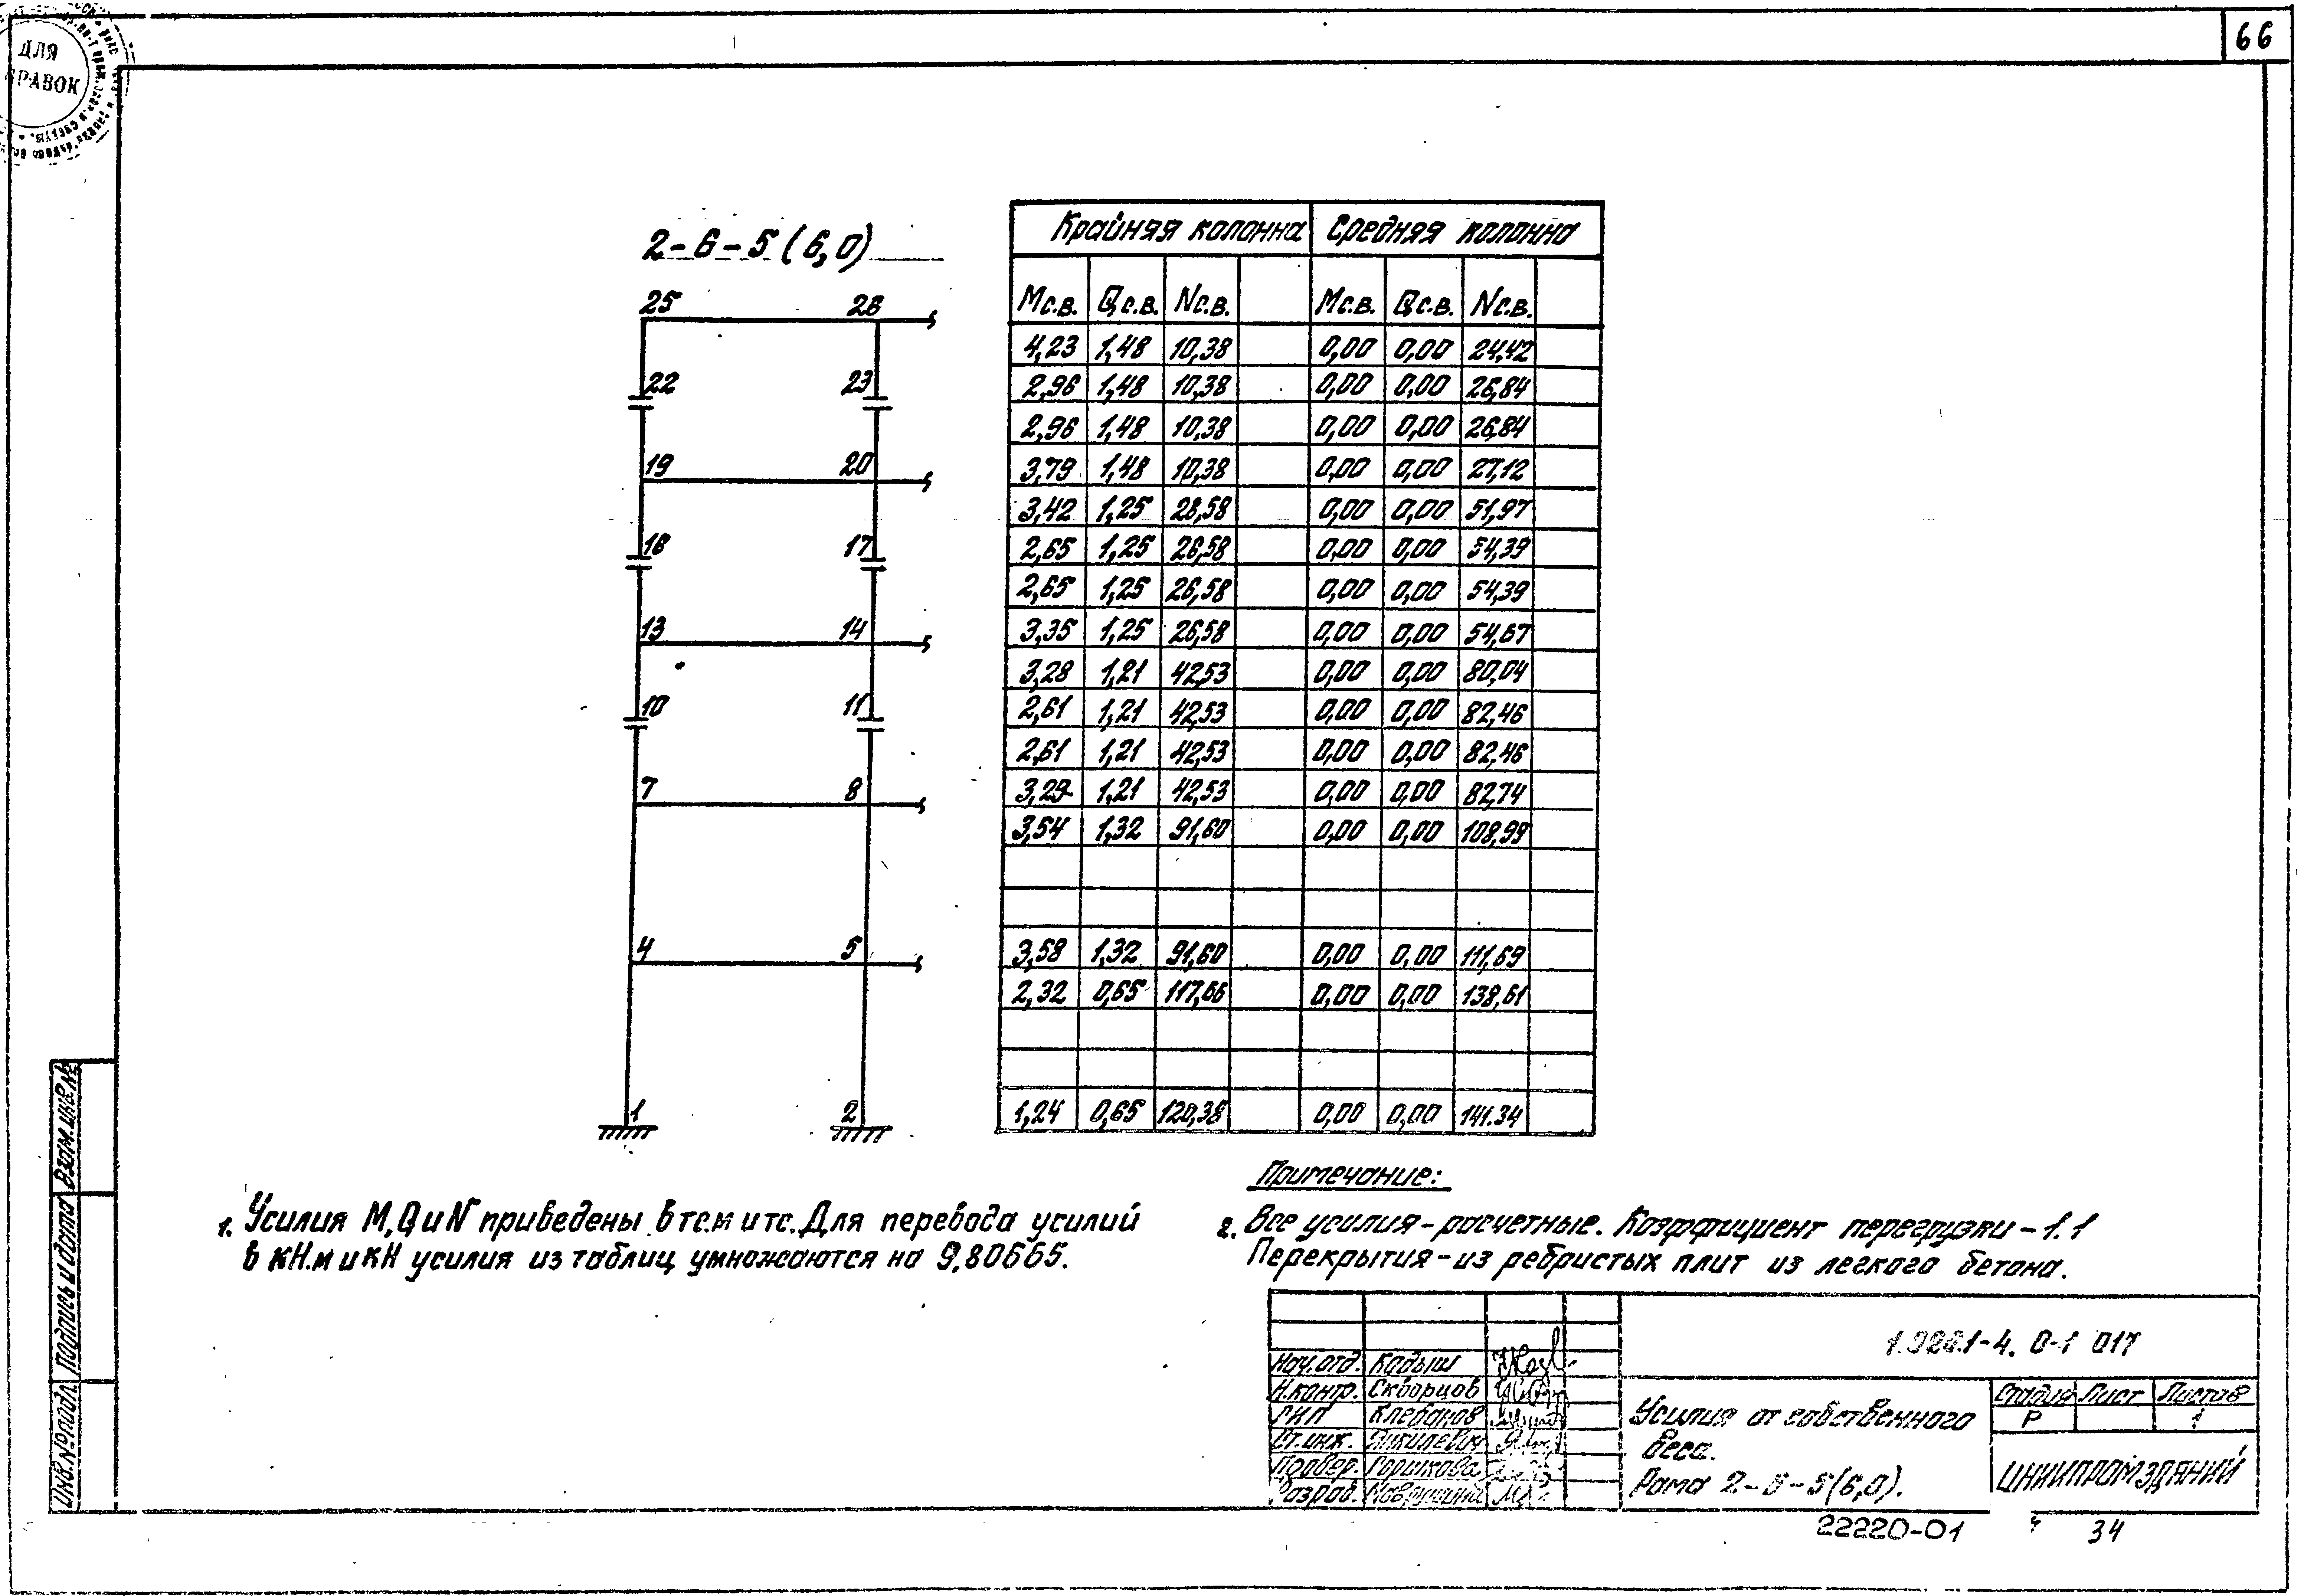 66
ДЛЯ
2-6-5(6,0)
25 26
22 23
19 20
16 17
13 14
10 11
7 8
4 5
1 2
Крайняя колонна Средняя колонна
Мс.в. Qс.в. Nс.в. Мс.в. Qс.в. Nс.в.
4,23 1,48 10,38 0,00 0,00 24,42
2,96 1,48 10,38 0,00 0,00 26,84
2,96 1,48 10,38 0,00 0,00 26,84
3,79 1,48 10,38 0,00 0,00 27,12
3,42 1,25 26,58 0,00 0,00 51,97
2,65 1,25 26,58 0,00 0,00 54,39
2,65 1,25 26,58 0,00 0,00 54,39
3,35 1,25 26,58 0,00 0,00 54,67
3,28 1,21 42,53 0,00 0,00 80,04
2,61 1,21 42,53 0,00 0,00 82,46
2,61 1,21 42,53 0,00 0,00 82,46
3,29 1,21 42,53 0,00 0,00 82,74
3,54 1,32 91,60 0,00 0,00 108,99
3,58 1,32 91,60 0,00 0,00 111,69
2,32 0,65 117,66 0,00 0,00 138,61
1,24 0,65 120,38 0,00 0,00 141.34
1. Усилия М,Q и N приведены в тс.м и тс. Для перевода усилий
в кН.м и кН усилия из таблиц умножаются на 9,80665.
Примечание:
2. Все усилия-расчетные. Коэффициент перегрузки-1.1
Перекрытия-из ребристых плит из легкого бетона.
Взам.инв.№
Подпись и дата
Инв.№подл.
Нач.отд. Кадыш
Н.контр. Скворцов
ГИП Клебанов
Ст.инж. Янкилевич
Провер. Горшкова
Разраб.
0-1 017
Усилия от собственного
веса.
Рама 2-6-5(6,0).
Стадия Лист Листов
Р 1
ЦНИИПРОМЗДАНИЙ
22220-01 34